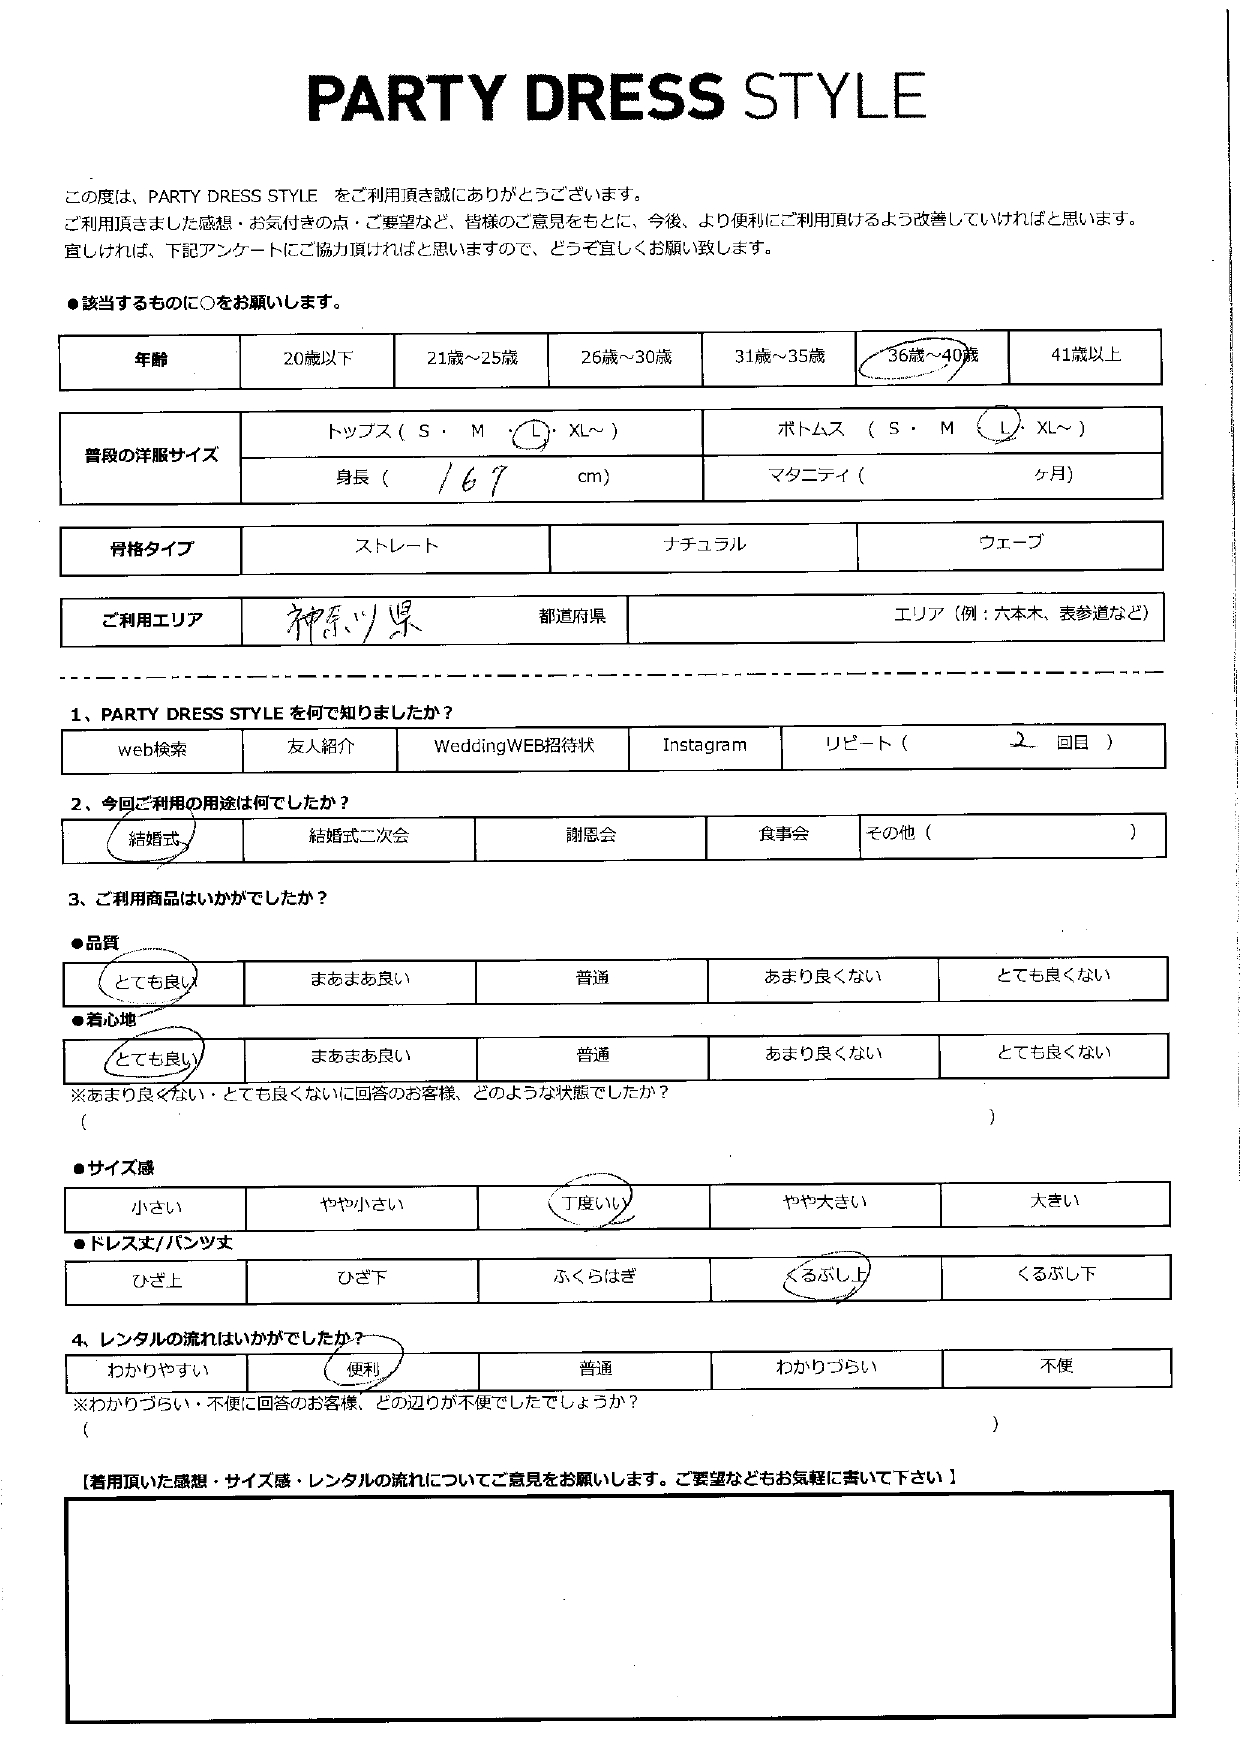 PARTY DRESS STYLE
この度は、PARTY DRESS STYLE をご利用頂き誠にありがとうございます。
ご利用頂きました感想・お気付きの点・ご要望など、皆様のご意見をもとに、今後、より便利にご利用頂けるよう改善していければと思います。
宜しければ、下記アンケートにご協力頂ければと思いますので、どうぞ宜しくお願い致します。
●該当するものに○をお願いします。
年齢 20歳以下 21歳～25歳 26歳～30歳 31歳～35歳 36歳～40歳 41歳以上
普段の洋服サイズ
トップス ( S ・ M ・ L ・ XL～ ) ボトムス ( S ・ M ・ L ・ XL～ )
身長 ( 167 cm) マタニティ ( ヶ月)
骨格タイプ ストレート ナチュラル ウェーブ
ご利用エリア 神奈川県 都道府県 エリア（例：六本木、表参道など）
1、PARTY DRESS STYLE を何で知りましたか？
web検索 友人紹介 WeddingWEB招待状 Instagram リピート ( 2 回目 )
2、今回ご利用の用途は何でしたか？
結婚式 結婚式二次会 謝恩会 食事会 その他 ( )
3、ご利用商品はいかがでしたか？
●品質
とても良い まあまあ良い 普通 あまり良くない とても良くない
●着心地
とても良い まあまあ良い 普通 あまり良くない とても良くない
※あまり良くない・とても良くないに回答のお客様、どのような状態でしたか？
( )
●サイズ感
小さい やや小さい 丁度いい やや大きい 大きい
●ドレス丈/パンツ丈
ひざ上 ひざ下 ふくらはぎ くるぶし上 くるぶし下
4、レンタルの流れはいかがでしたか？
わかりやすい 便利 普通 わかりづらい 不便
※わかりづらい・不便に回答のお客様、どの辺りが不便でしたでしょうか？
( )
【着用頂いた感想・サイズ感・レンタルの流れについてご意見をお願いします。ご要望などもお気軽に書いて下さい】